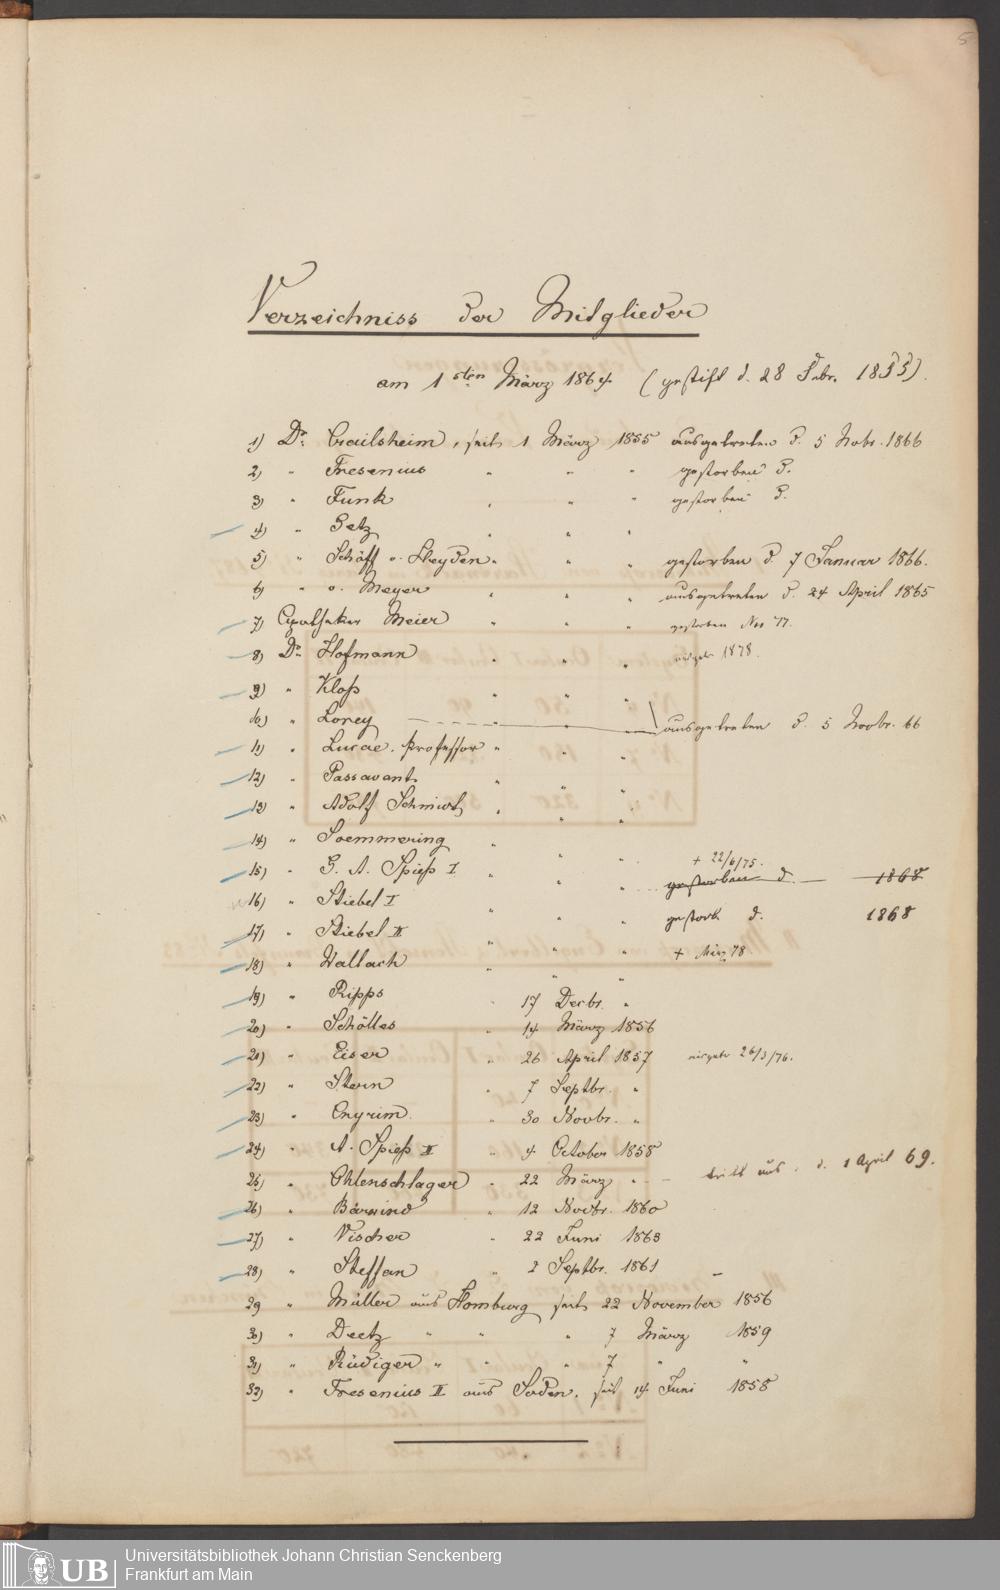 5
Verzeichniss der Mitglieder
am 1sten März 1864. (gestift d. 28 Febr. 1855).
1) Dr. Crailsheim, seit 1 März 1855 ausgetreten d. 5 Nobr. 1866
2) " Fresenius " " " gestorben d.
3) " Funk " " " gestorben d.
4) " Getz " " "
5) " Schöff v. Heyden " " " gestorben d. 7 Januar 1866.
6) " v. Meyer " " " ausgetreten d. 24 April 1865
7) Apotheker Meier " " " gestorben Nov 77.
8) Dr. Hofmann " " " 1878.
9) " Kloß " " "
10) " Lorey " " " ausgetreten d. 5 Novbr. 66
11) " Lucae, Professor " " "
12) " Passavant " " "
13) " Adolf Schmidt " " "
14) " Soemmering " " "
+ 22/6/75.
15) " G. A. Spieß I " " " gestorben d. 1868
16) " Stiebel I " " " gestorb d. 1868
17) " Stiebel II " " " + März 78.
18) " Wallach " " "
19) " Ripps " 17 Decbr. "
20) " Schölles " 14 März 1856
21) " Eiser " 26 April 1857 26/3/76.
22) " Stern " 7 Septbr. "
23) " Cnyrim " 30 Novbr. "
24) " A. Spieß II " 4 October 1858
25) " Ohlenschlager " 22 März " tritt aus d. 1 April 69.
26) " Bärwind " 12 Novbr. 1860
27) " Vischer " 22 Juni 1863
28) " Steffan " 2 Septbr. 1861
29 " Müller aus Homburg seit 22 November 1856
30) " Deetz " " " 7 März 1859
31) " Rüdiger " " " 7 " "
32) " Fresenius II aus Soden, seit 14 Juni 1858
UB
Universitätsbibliothek Johann Christian Senckenberg
Frankfurt am Main